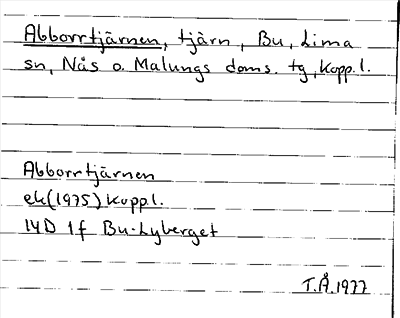 Abborrtjärnen, tjärn, Bu, Lima
sn, Nås o. Malungs doms. tg, Kopp.l.
Abborrtjärnen
ek(1975) Koppl.
14D 1f Bu-Lyberget
T.Å.1977